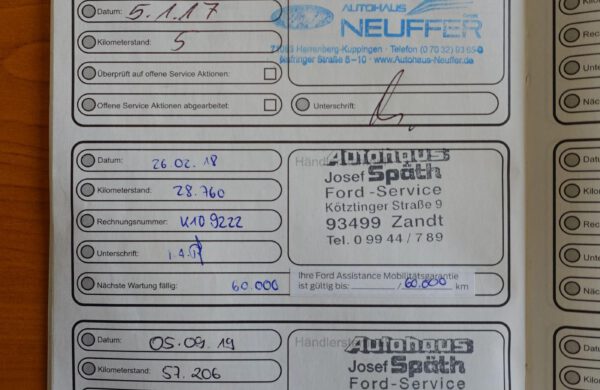 Datum: 5.1.17
AUTOHAUS
NEUFFER
Kilometerstand: 5
71083 Herrenberg-Kuppingen · Telefon (0 70 32)
Straße 8-10 · www.Autohaus-Neuffer.de
Überprüft auf offene Service Aktionen:
Offene Service Aktionen abgearbeitet:
Unterschrift:
Datum: 26.02.18
Kilometerstand: 28.760
Rechnungsnummer: K109222
Unterschrift: i.A.
Nächste Wartung fällig: 60.000
Autohaus
Josef Späth
Ford-Service
Kötztinger Straße 9
93499 Zandt
Tel. 0 99 44 / 7 89
Ihre Ford Assistance Mobilitätsgarantie
ist gültig bis: / 60.000 km
Datum: 05.09.19
Kilometerstand: 57.206
Autohaus
Josef Späth
Ford-Service
Datum: